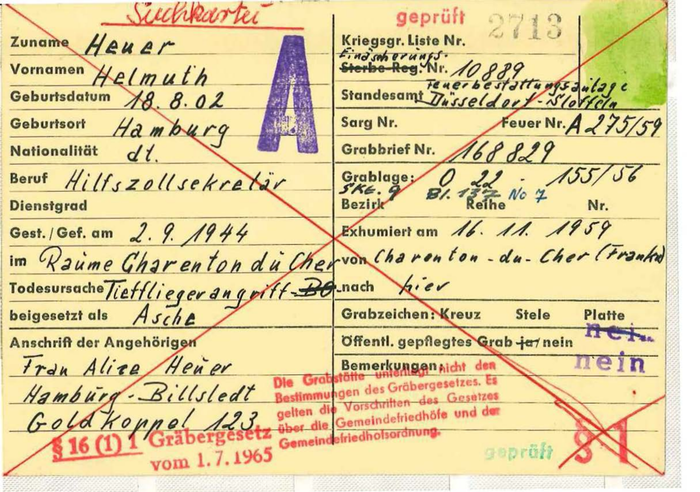 Suchkartei
geprüft 2713
Zuname Heuer
Vornamen Helmuth
Geburtsdatum 18.8.02
Geburtsort Hamburg
Nationalität dt.
Beruf Hilfszollsekretär
Dienstgrad
Gest./Gef. am 2.9.1944
im Raume Charenton du Cher
Todesursache Tieffliegerangriff
beigesetzt als Asche
Anschrift der Angehörigen
Frau Alize Heuer
Hamburg-Billstedt
Goldkoppel 123
§ 16 (1) 1 Gräbergesetz
vom 1.7.1965
A
Kriegsgr. Liste Nr.
Einäscherungs-
Sterbe-Reg. Nr. 10889
Feuerbestattungsanlage
Standesamt Düsseldorf-Stoffeln
Sarg Nr. Feuer Nr. A 275/59
Grabbrief Nr. 168829
Grablage: O 22 - 155/56
SKG. 9 Bl. 137 No 7
Bezirk Reihe Nr.
Exhumiert am 16.11.1959
von Charonton-du-Cher (Frankr)
nach hier
Grabzeichen: Kreuz Stele Platte
nein
Öffentl. gepflegtes Grab ja/nein
nein
Bemerkungen:
Die Grabstätte unterliegt nicht den
Bestimmungen des Gräbergesetzes. Es
gelten die Vorschriften des Gesetzes
über die Gemeindefriedhöfe und der
Gemeindefriedhofsordnung.
geprüft
§ 1